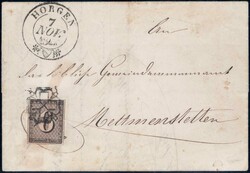 HORGEN
7
NOV.
An
Das löbliche Gemeindeammannamt
Mettmenstetten
6